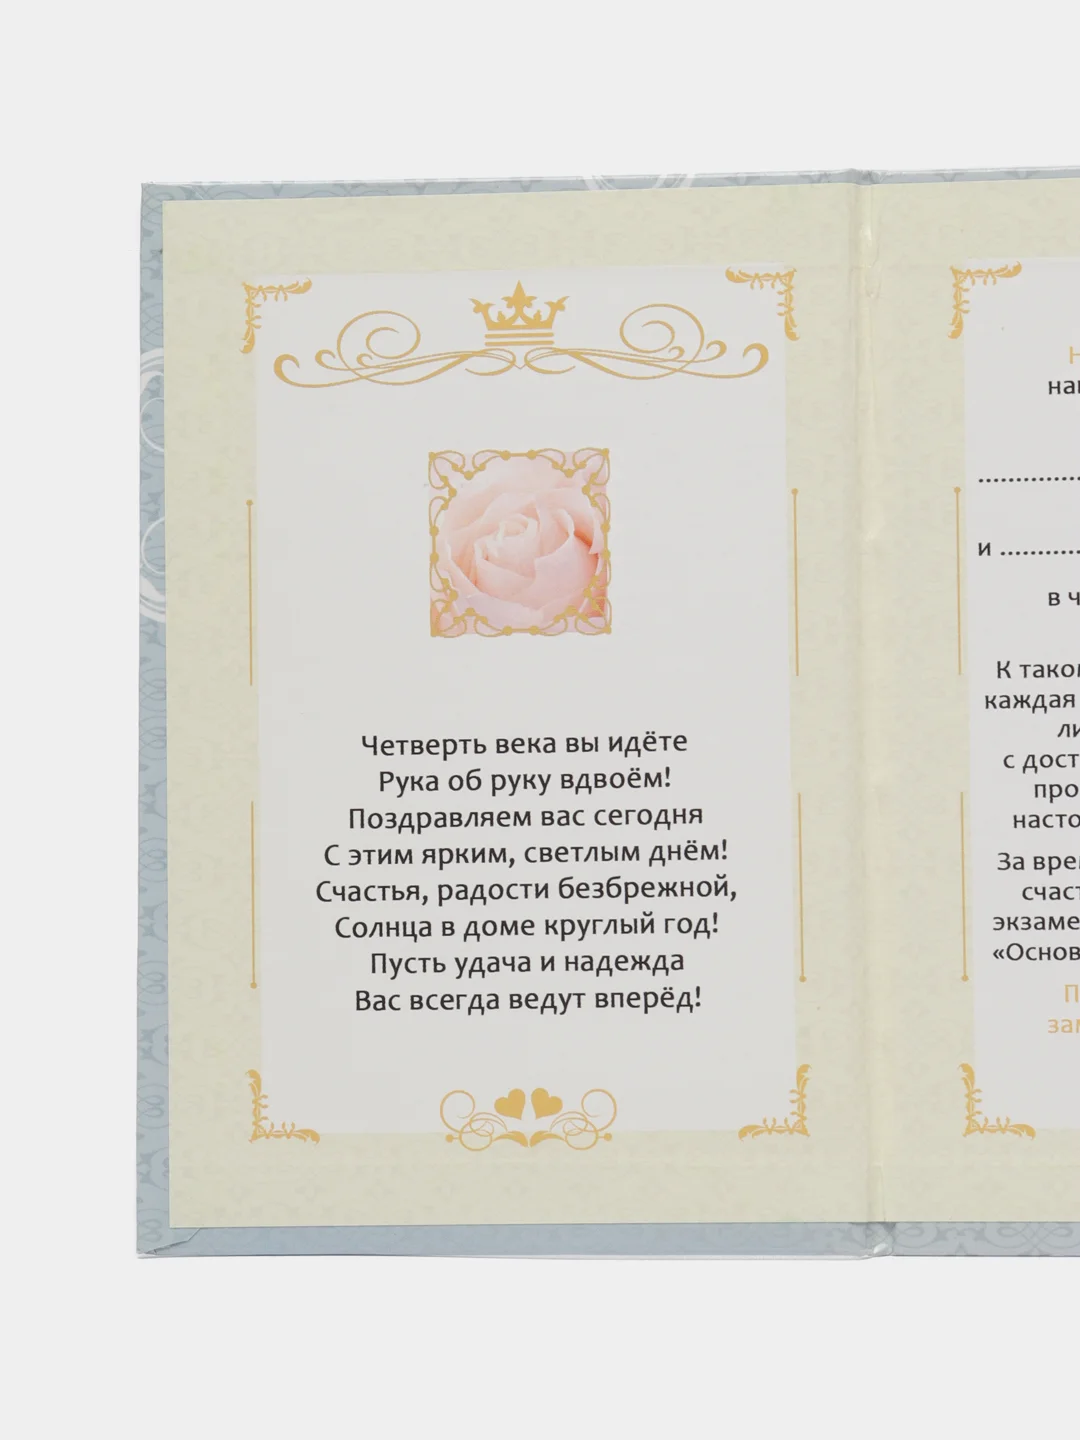 Четверть века вы идёте
Рука об руку вдвоём!
Поздравляем вас сегодня
С этим ярким, светлым днём!
Счастья, радости безбрежной,
Солнца в доме круглый год!
Пусть удача и надежда
Вас всегда ведут вперёд!
и
в
К
каждая
с
За
«Основ